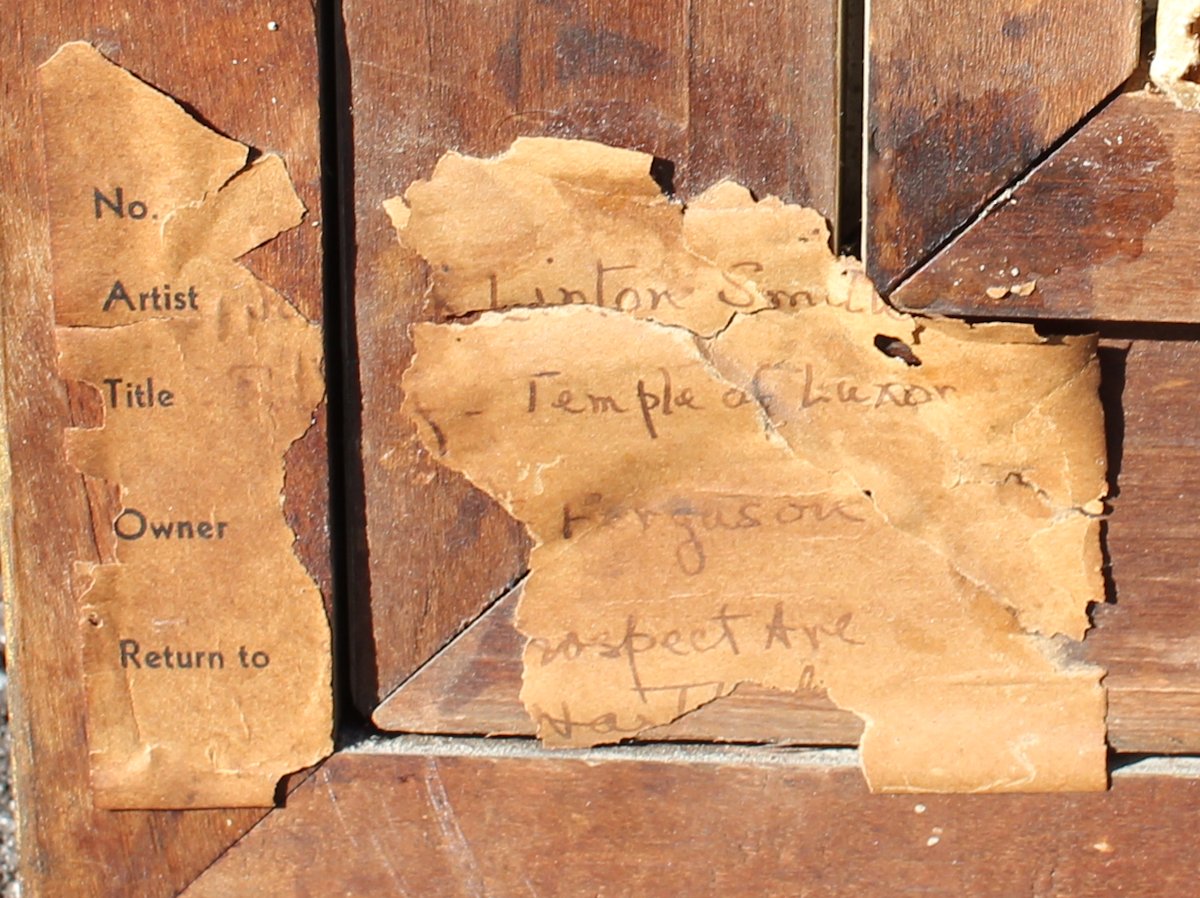 No.
Artist Linton Smith
Title - Temple of Luxor
Owner Ferguson
Return to rospect Ave